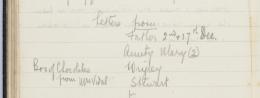 Letters from
Father 2nd & 17th Dec.
Aunty Mary (2)
Box of Chocolates Wrigley
from Mrs Vidal Stewart